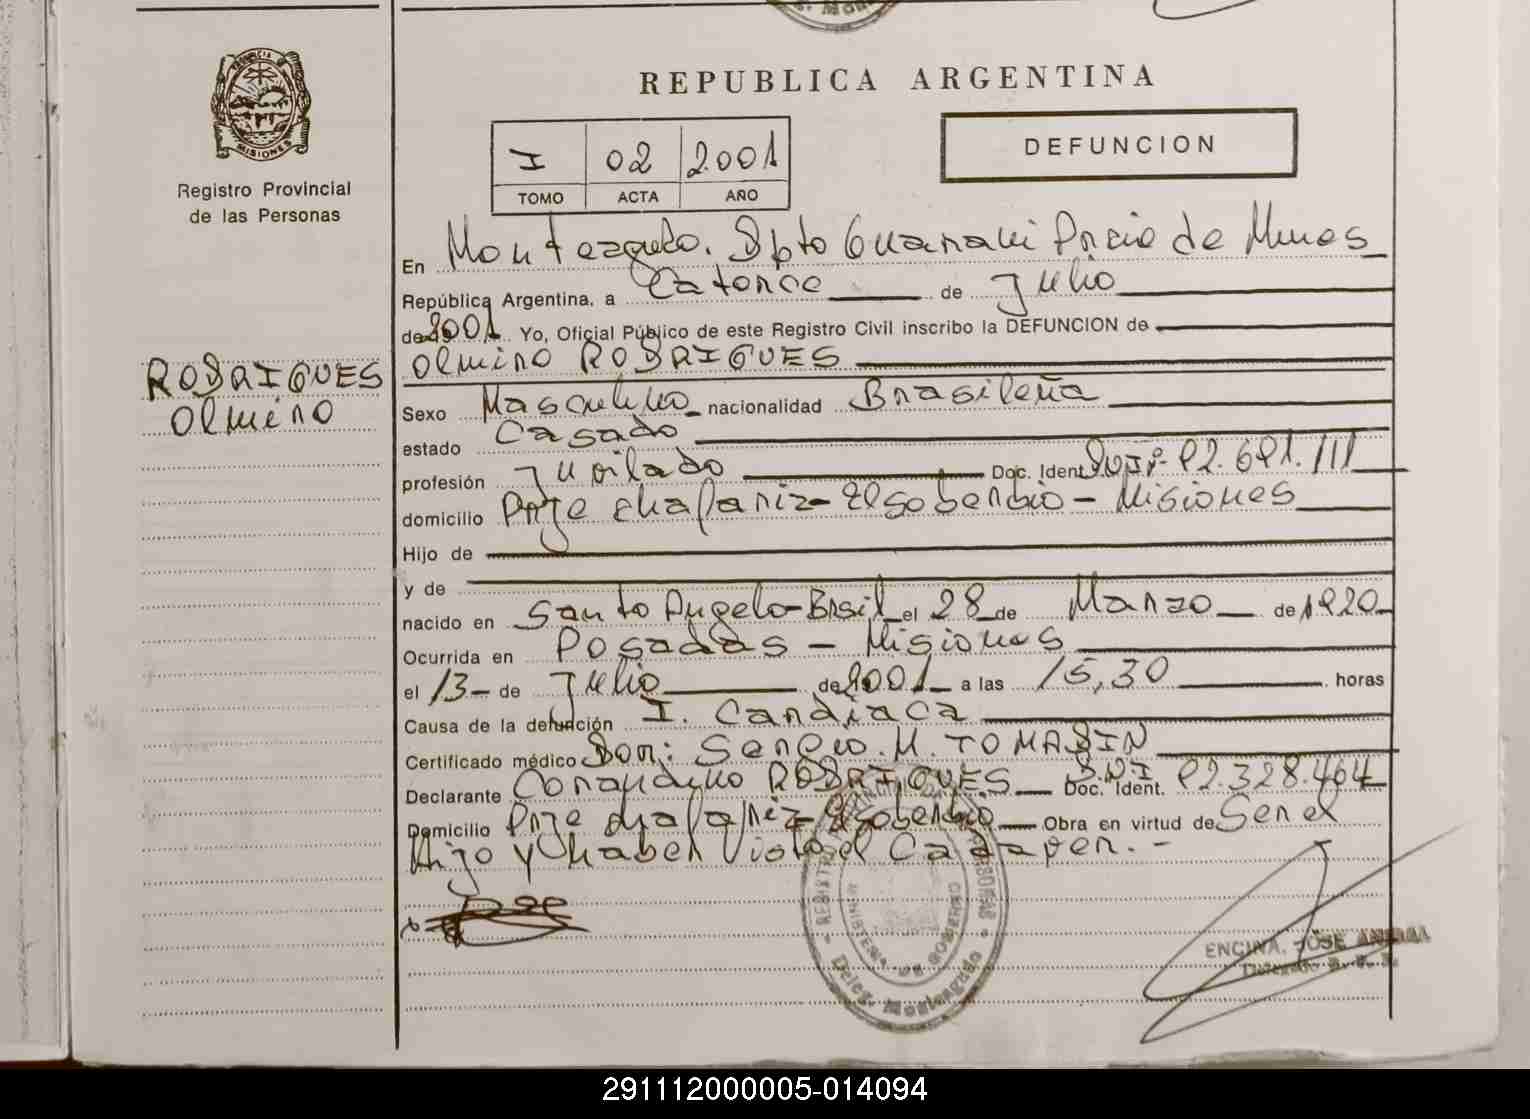 REPUBLICA ARGENTINA
PROVINCIA DE
MISIONES
Registro Provincial
de las Personas
I 02 2.001
TOMO ACTA AÑO
DEFUNCION
En Monteagudo. Dpto Guarani Pncia de Mnes
República Argentina, a Catorce de Julio
de 2001 Yo, Oficial Público de este Registro Civil inscribo la DEFUNCION de
Olmiro RODRIGUES
RODRIGUES
Olmiro
Sexo Masculino nacionalidad Brasileña
estado Casado
profesión Jubilado Doc. Ident. DNI Nº 92.691.111
domicilio Prje Chafariz - El soberbio - Misiones
Hijo de
y de
nacido en Santo Angelo - Brsil el 28 de Marzo de 1920
Ocurrida en Posadas - Misiones
el 13 de Julio de 2001 a las 15,30 horas
Causa de la defunción I. Cardiaca
Certificado médico Dor: Sergio. M. TOMASIN
Declarante RODRIGUES D.N.I. Doc. Ident. 92.328.464
Domicilio Prje chafariz El soberbio Obra en virtud de Ser el
Hijo y haber Visto el Cadaver. -
MINISTERIO DE GOBIERNO
Deleg. Monteagudo
ENCINA, JOSE ANIBAL
291112000005-014094